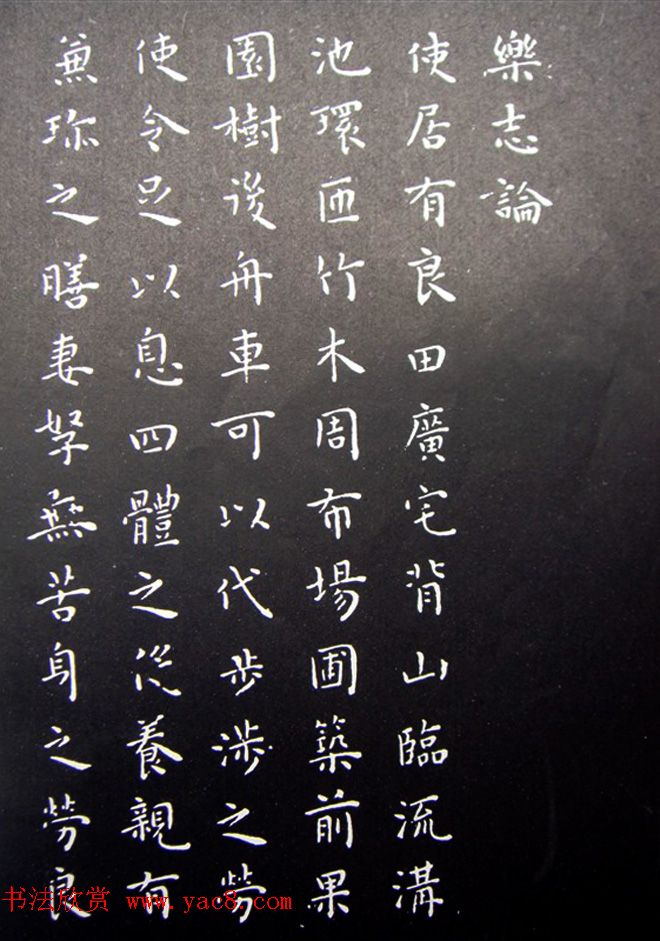 樂志論
使居有良田廣宅背山臨流溝
池環匝竹木周布場圃築前果
園樹後舟車可以代步涉之勞
使令足以息四體之役養親有
兼珎之膳妻孥無苦身之勞良
书法欣赏 www.yac8.com